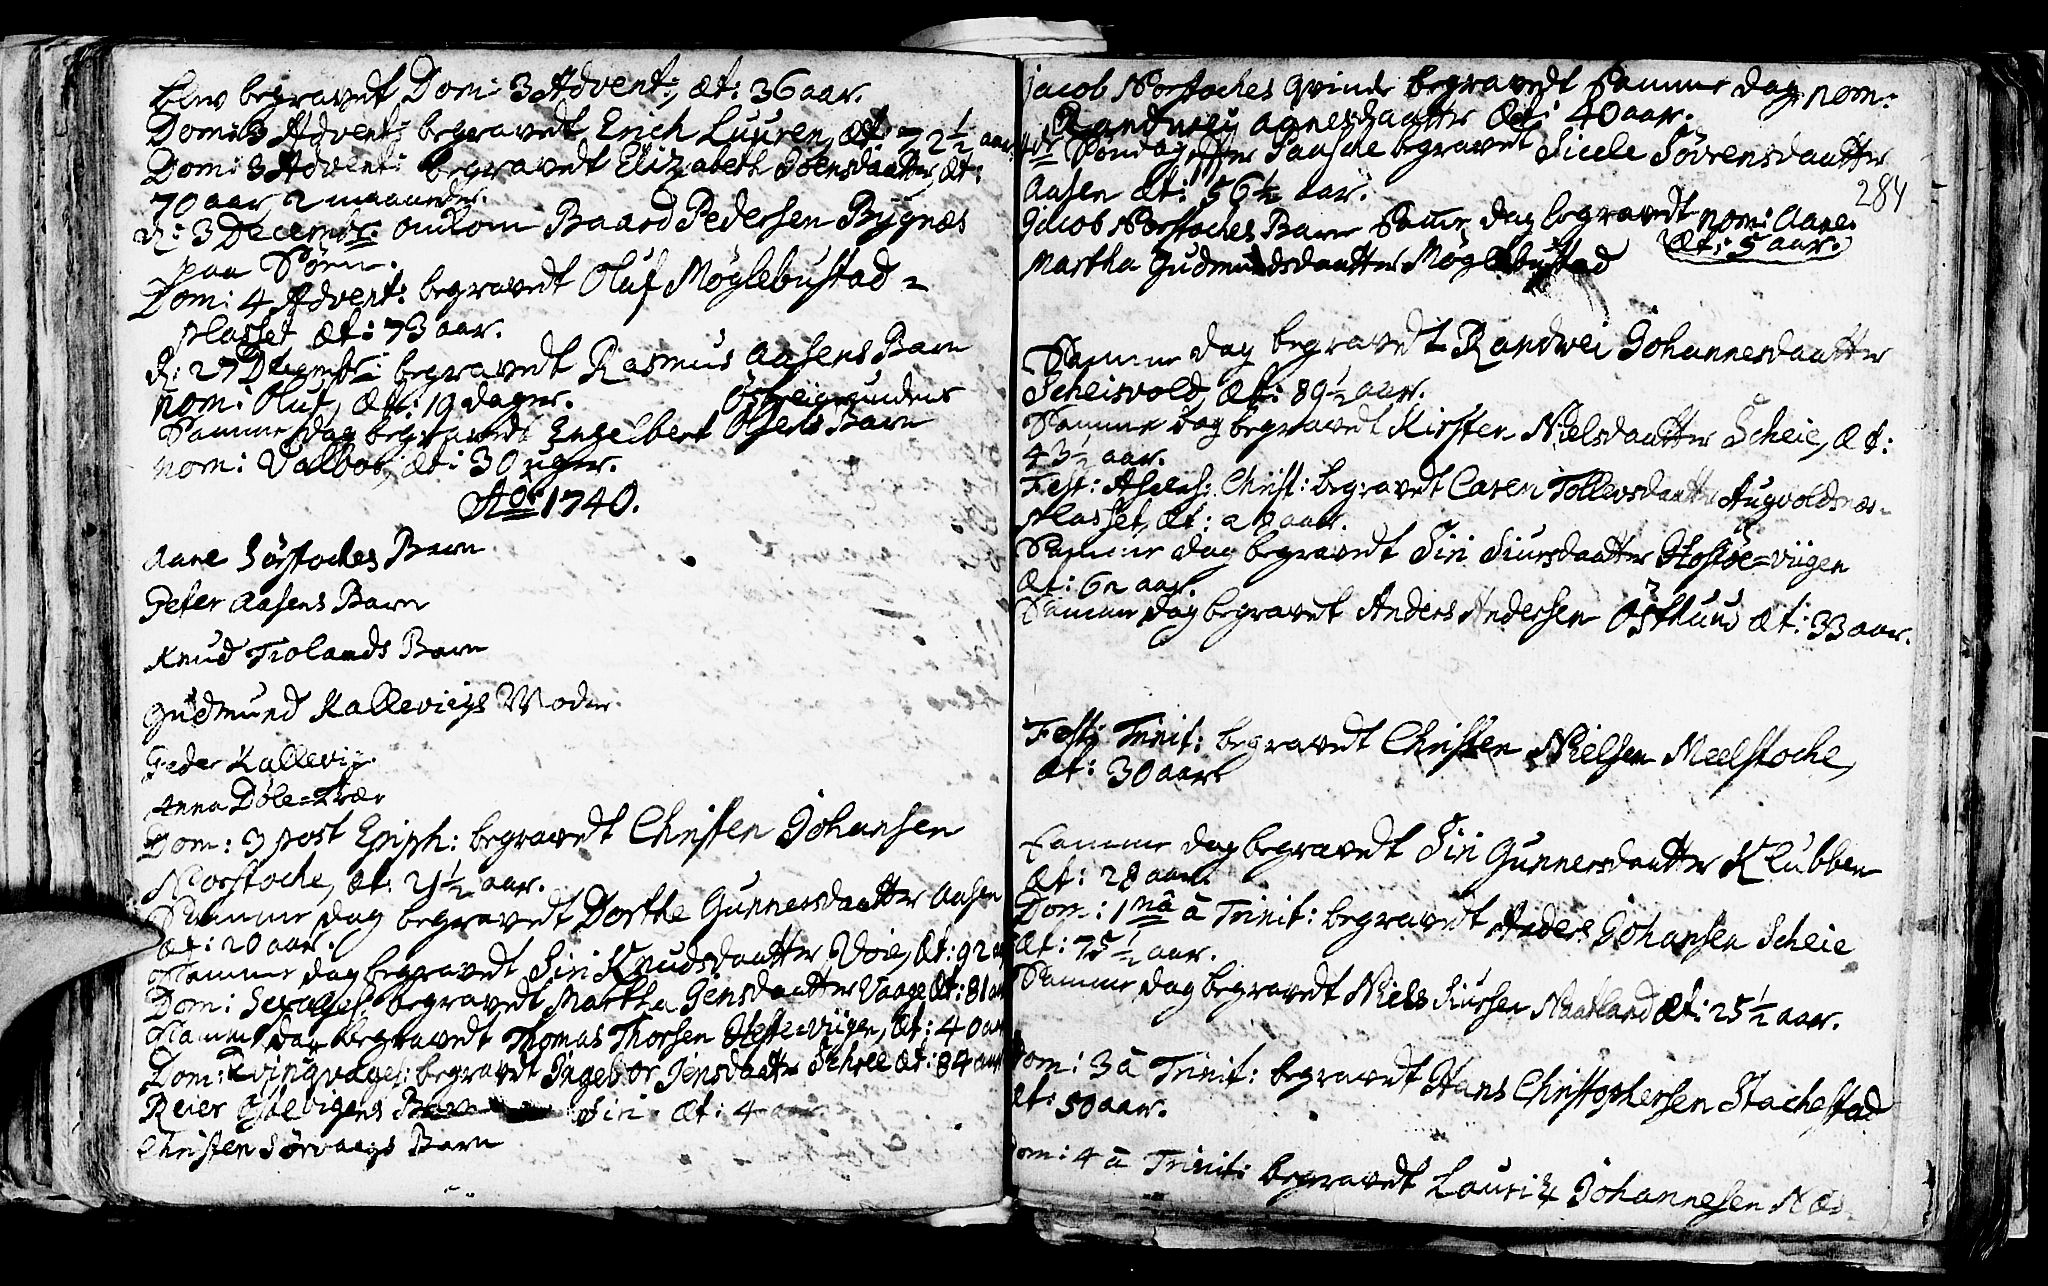 blev begravedt Dom: 3 Advent:, æt: 36 aar.
Dom: 3 Advent: begravedt Erich Luuren, æt: 72 1/2 aar.
Dom: 3 Advent: begravedt Elizabeth Joensdaatter, æt:
70 aar 2 maaneder.
d: 3 Decembr: omkom Baard Pedersen Bygnæs
paa Søen.
Dom: 4 Advent: begravedt Oluf Møglebustad-
plasset æt: 73 aar.
d: 27 Decembr: begravedt Rasmus Aasens Barn
nom: Oluf, æt: 19 dager.
Samme dag begravedt Engelbert Olsens Barn
nom: Valbor, æt: 30 uger.
Aoe 1740.
Aane Sørstoches Barn
Peter Aasens Barn
Knud Tiolands Barn
Gudmund Kallevigs Moder.
Peder Kallevig.
Anna Døle=Tvær
Dom: 3 post Epiph: begravedt Christen Johansen
Norstoche, æt: 21 1/2 aar.
Samme dag begravedt Dorthe Gunnersdaatter Aasen
æt: 20 aar.
Samme dag begravedt Siri Knudsdaatter Voie, æt: 92
Dom: Sexages: begravedt Martha Jensdaatter Vaage æt: 81 aar
Samme dag begravedt Thomas Thorsen Heste=Viigen, æt: 40 aar
Dom: Qvinqvages: begravedt Ingebor Jensdaatter Schree æt: 84 aar
Reier Barn Siri æt: 4 aar
Christen Sørvaags Barn
Jacob Norstoches Qvinde begravedt Samme dag nom:
Randwei Agnesdaatter æt: 40 aar.
Søndag efter Paasche begravet Sicele Sørensdaatter
Aasen æt: 56 1/2 aar.
284
Jacob Norstoches Barn Samme dag begravedt nom: Aane.
æt: 5 aar.
Martha Gudmundsdaatter Møglebustad
Samme dag begravedt Randwei Johannesdaatter
Scheisvold, æt: 89 1/2 aar.
Samme dag begravedt Kirsten Nielsdaatter Scheie, æt:
43 1/2 aar.
Fest: Ascens: Christ: begravedt Caren Tollevsdaatter Augvoldsnæs-
plasset, æt: aar.
Samme dag begravedt Siri Siursdaatter Hostøe=viigen
æt: 62 aar.
Samme dag begravedt Anders Andersen Østhuus æt: 33 aar.
Fest: Trinit: begravedt Christen Nielsen Meelstoche,
æt: 30 aar.
Samme dag begravedt Siri Gunnersdaatter Klubben
æt: 28 aar.
Dom: 1ma a Trinit: begravedt Anders Johansen Scheie
æt: 75 1/2 aar.
Samme dag begravedt Niels Siursen Naatland æt: 25 1/2 aar.
Dom: 3 a Trinit: begravedt Hans Christophersen Stachestad
æt: 50 aar.
Dom: 4 a Trinit: begravedt Lauritz Johannesen Næs